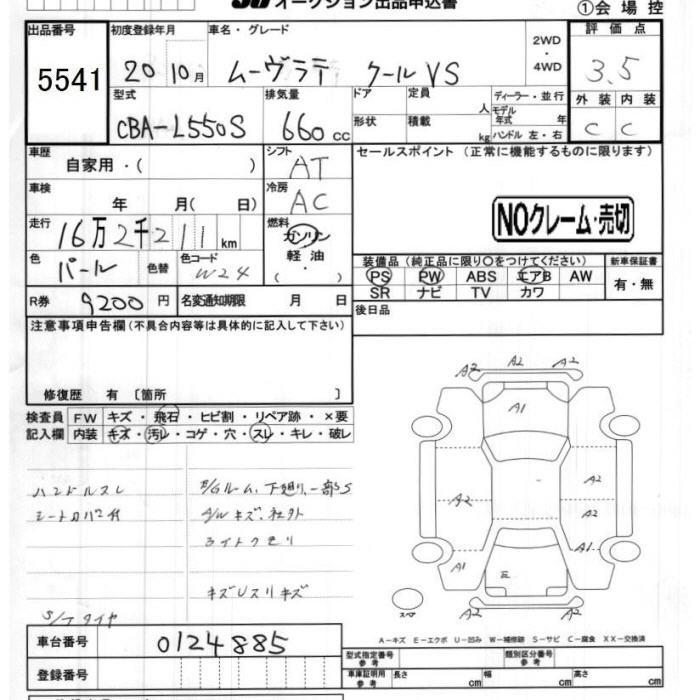 オークション出品申込書
①会場控
出品番号 初度登録年月 車名・グレード 2WD・4WD 評価点
5541 20 10月 ムーヴラテ クール VS 3.5
型式 排気量 ドア 定員 人 ディーラー・並行
モデル年式 年 外装 内装
CBA-L550S 660cc 形状 積載 kg ハンドル 左・右 C C
車歴 自家用・( ) シフト AT セールスポイント (正常に機能するものに限ります)
車検 年 月( 日) 冷房 AC
NOクレーム・売切
走行 16万2千211km 燃料 ガソリン 軽油
色 パール 色替 色コード W24
装備品(純正品に限り〇をつけてください) 新車保証書
PS PW ABS エアB AW 有・無
SR ナビ TV カワ
R券 9200円 名変通知期限 月 日 後日品
注意事項申告欄(不具合内容等は具体的に記入して下さい)
修復歴 有〔箇所 〕
検査員 FW キズ・飛石・ヒビ割・リペア跡・×要
記入欄 内装 キズ・汚レ・コゲ・穴・スレ・キレ・破レ
ハンドルスレ
シートカバー付
S/Tタイヤ
E/Gルーム、下廻り、一部S
A/Wキズ、社外
ライトクモリ
キズUスリキズ
A2 A2 A2
A1
A2 A2
A2
A1 A1
A2 A2
スペア
A-キズ E-エクボ U-凹み W-補修跡 S-サビ C-腐食 XX-交換済
車台番号 0124885
登録番号
型式指定番号 参考 類別区分番号 参考
車庫証明用 参考 長さ cm 幅 cm 高さ cm